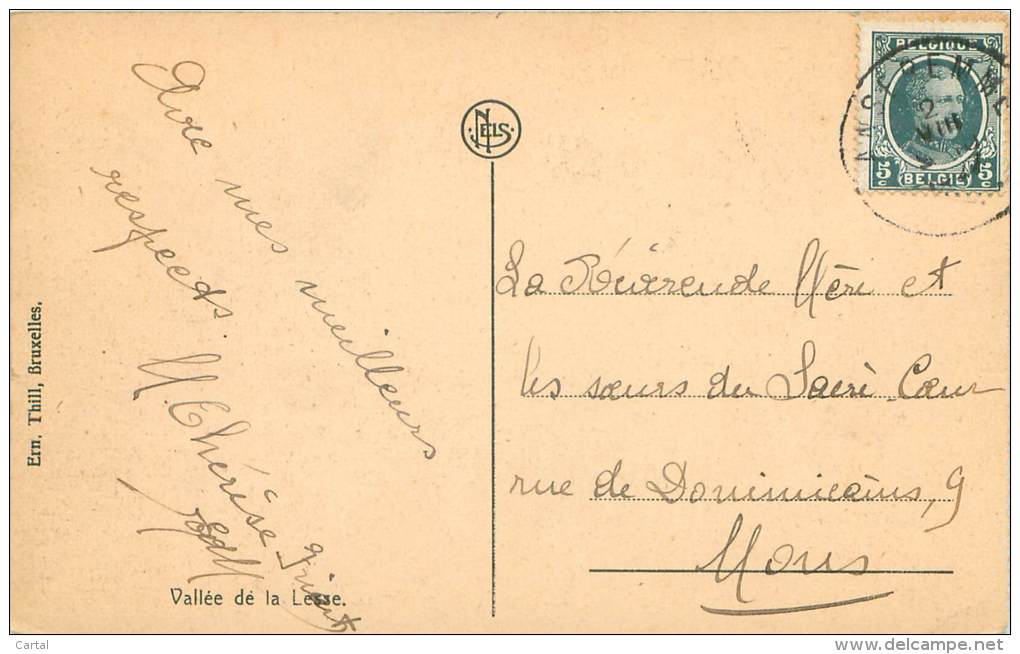 Avec mes meilleurs
respects.
M. Thérèse
Ern. Thill, Bruxelles.
Vallée de la Lesse.
NELS
BELGIQUE
5c BELGIË 5c
ANSEREMME
2
VIII
La Révérende Mère et
les sœurs du Sacré-Cœur
rue de Dominicains, 9
Mons
Cartal
delcampe.net